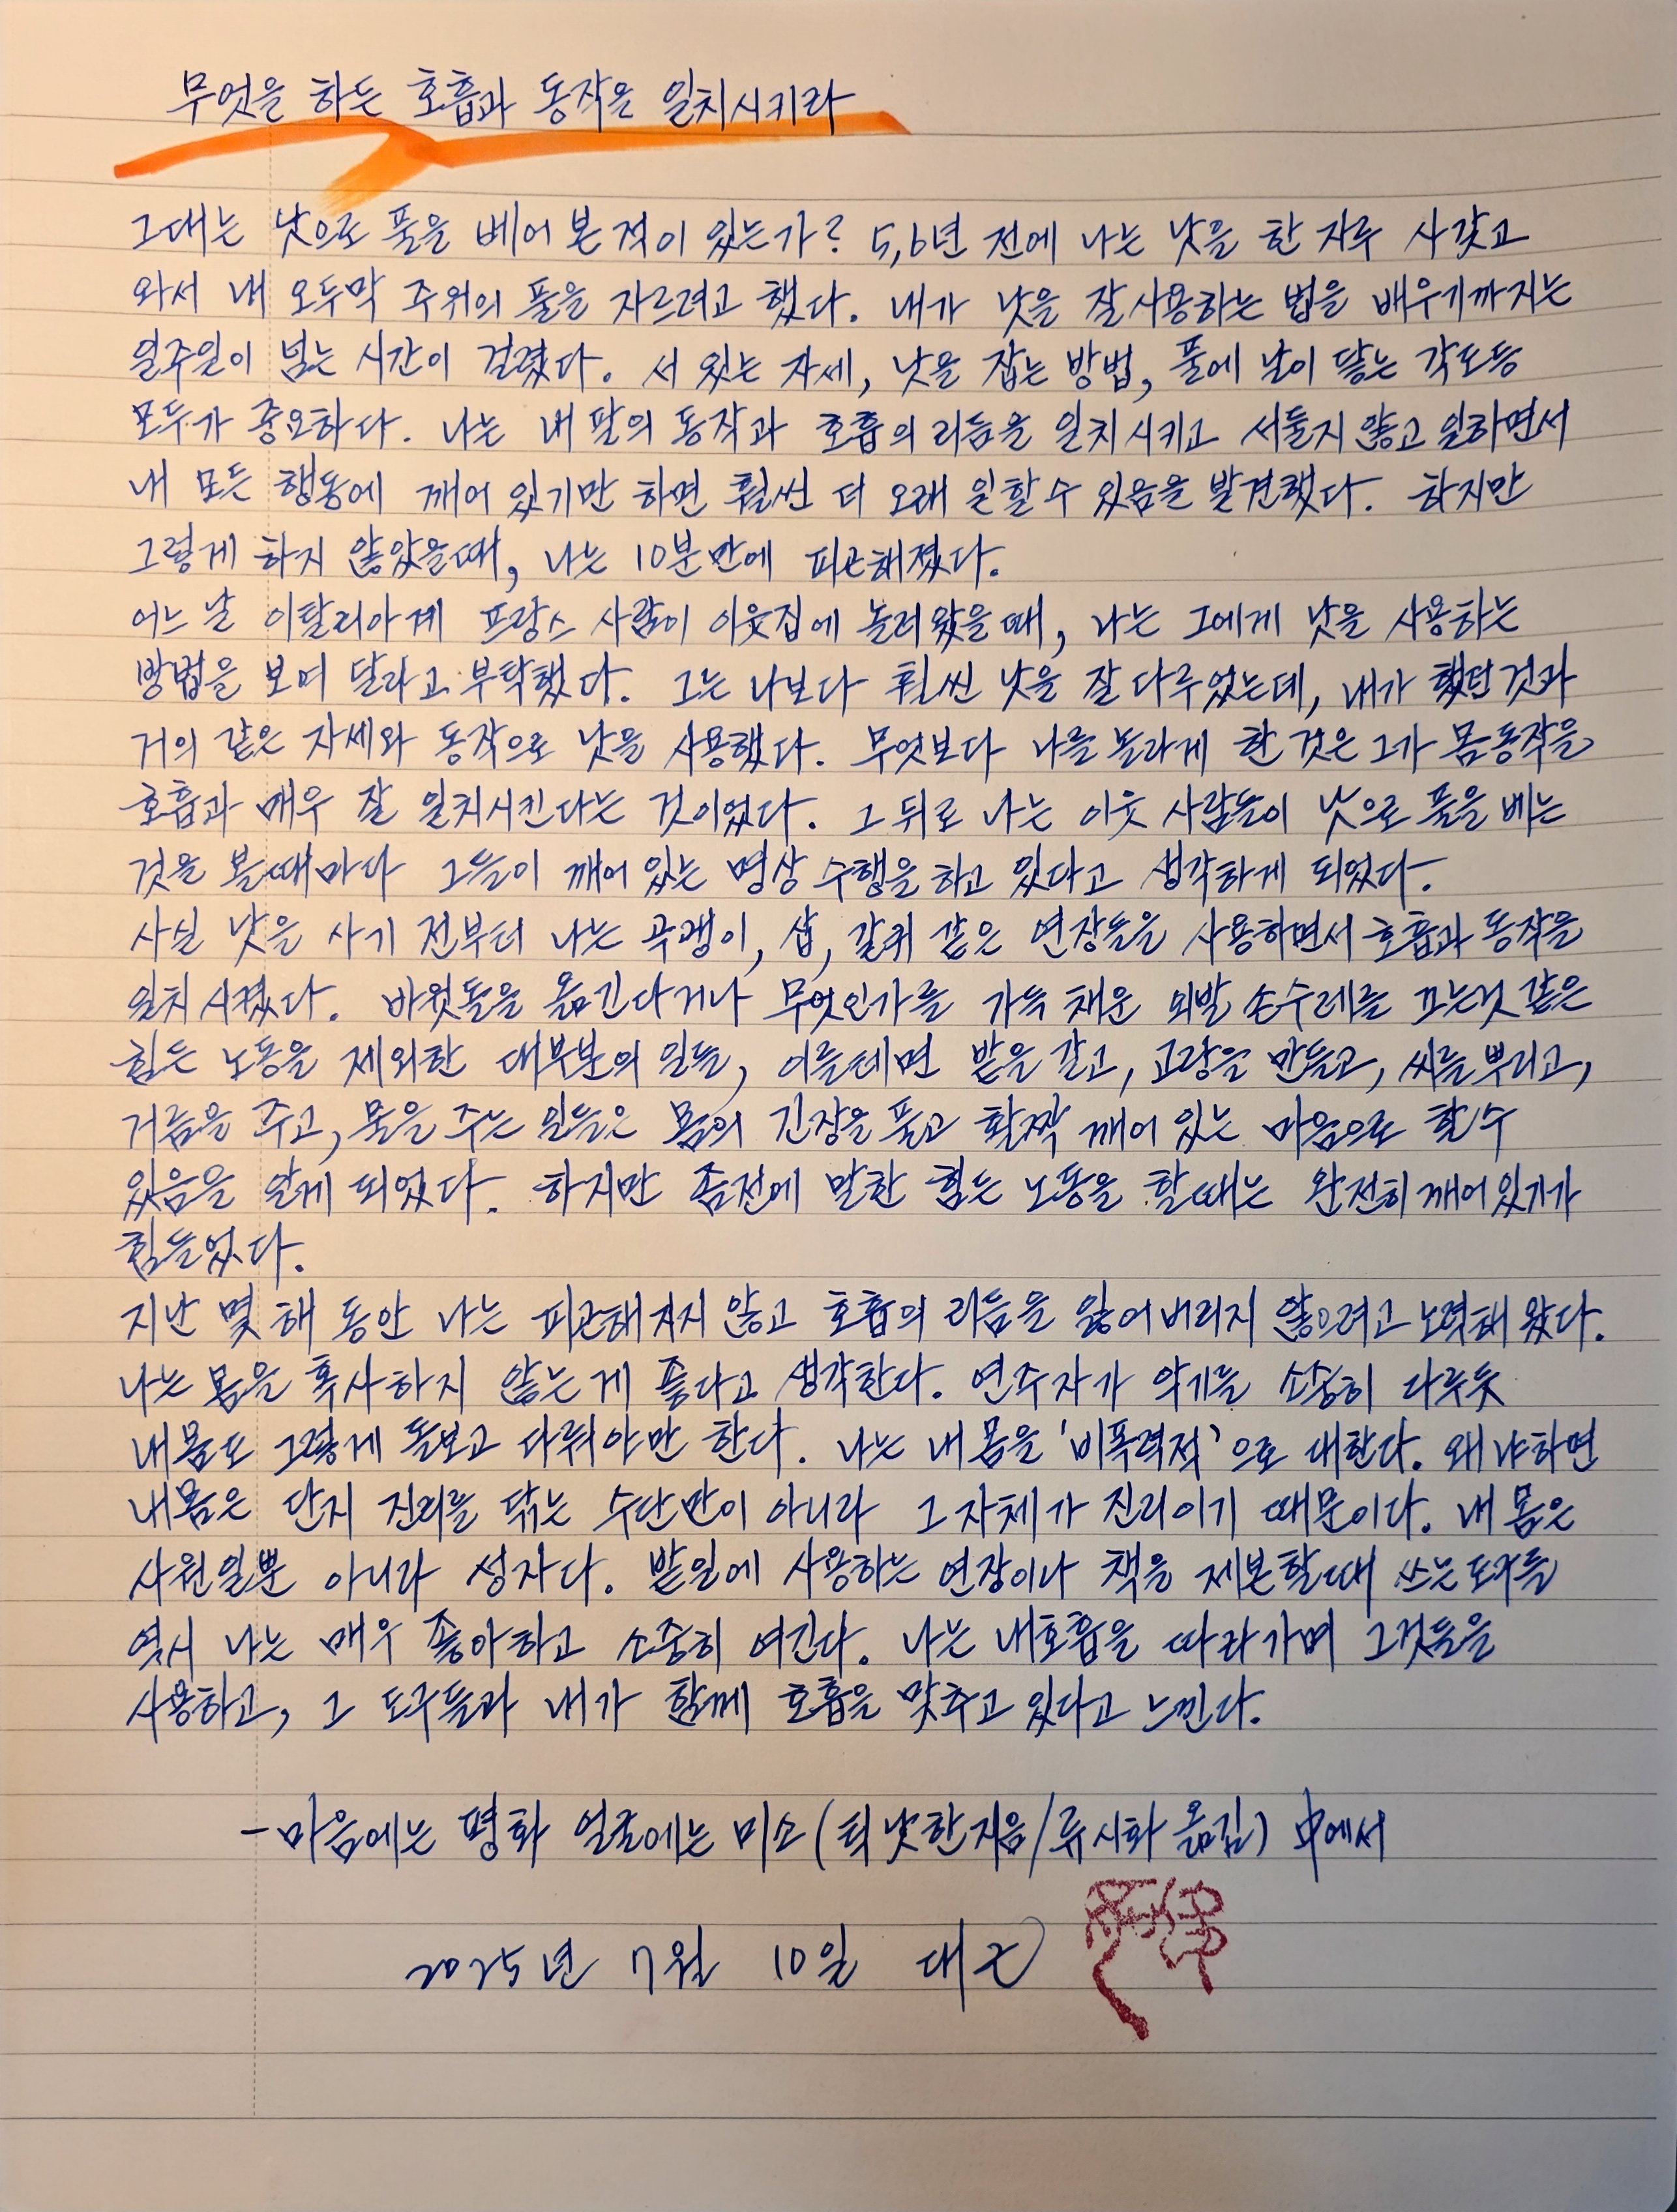 무엇을 하든 호흡과 동작을 일치시키라
그대는 낫으로 풀을 베어 본 적이 있는가? 5,6년 전에 나는 낫을 한 자루 사갖고
와서 내 오두막 주위의 풀을 자르려고 했다. 내가 낫을 잘 사용하는 법을 배우기까지는
일주일이 넘는 시간이 걸렸다. 서 있는 자세, 낫을 잡는 방법, 풀에 날이 닿는 각도등
모두가 중요하다. 나는 내 팔의 동작과 호흡의 리듬을 일치시키고 서둘지 않고 일하면서
내 모든 행동에 깨어 있기만 하면 훨씬 더 오래 일할 수 있음을 발견했다. 하지만
그렇게 하지 않았을때, 나는 10분만에 피곤해졌다.
어느 날 이탈리아계 프랑스 사람이 이웃집에 놀러왔을때, 나는 그에게 낫을 사용하는
방법을 보여 달라고 부탁했다. 그는 나보다 훨씬 낫을 잘 다루었는데, 내가 했던것과
거의 같은 자세와 동작으로 낫을 사용했다. 무엇보다 나를 놀라게 한 것은 그가 몸동작을
호흡과 매우 잘 일치시킨다는 것이었다. 그 뒤로 나는 이웃 사람들이 낫으로 풀을 베는
것을 볼때마다 그들이 깨어 있는 명상 수행을 하고 있다고 생각하게 되었다.
사실 낫을 사기 전부터 나는 곡괭이, 삽, 갈퀴 같은 연장들을 사용하면서 호흡과 동작을
일치시켰다. 바윗돌을 옮긴다거나 무엇인가를 가득 채운 외발 손수레를 끄는것 같은
힘든 노동을 제외한 대부분의 일들, 이를테면 밭을 갈고, 고랑을 만들고, 씨를 뿌리고,
거름을 주고, 물을 주는 일들은 몸의 긴장을 풀고 활짝 깨어 있는 마음으로 할수
있음을 알게 되었다. 하지만 좀전에 말한 힘든 노동을 할때는 완전히 깨어있기가
힘들었다.
지난 몇 해 동안 나는 피곤해지지 않고 호흡의 리듬을 잃어버리지 않으려고 노력해 왔다.
나는 몸을 혹사하지 않는게 좋다고 생각한다. 연주자가 악기를 소중히 다루듯
내몸도 그렇게 돌보고 다뤄야만 한다. 나는 내 몸을 '비폭력적'으로 대한다. 왜냐하면
내몸은 단지 진리를 닦는 수단만이 아니라 그 자체가 진리이기 때문이다. 내 몸은
사원일뿐 아니라 성자다. 밭일에 사용하는 연장이나 책을 제본할때 쓰는도구들
역시 나는 매우 좋아하고 소중히 여긴다. 나는 내호흡을 따라가며 그것들을
사용하고, 그 도구들과 내가 함께 호흡을 맞추고 있다고 느낀다.
-마음에는 평화 얼굴에는 미소(틱낫한지음/류시화 옮김) 中에서
2025년 7월 10일 대근